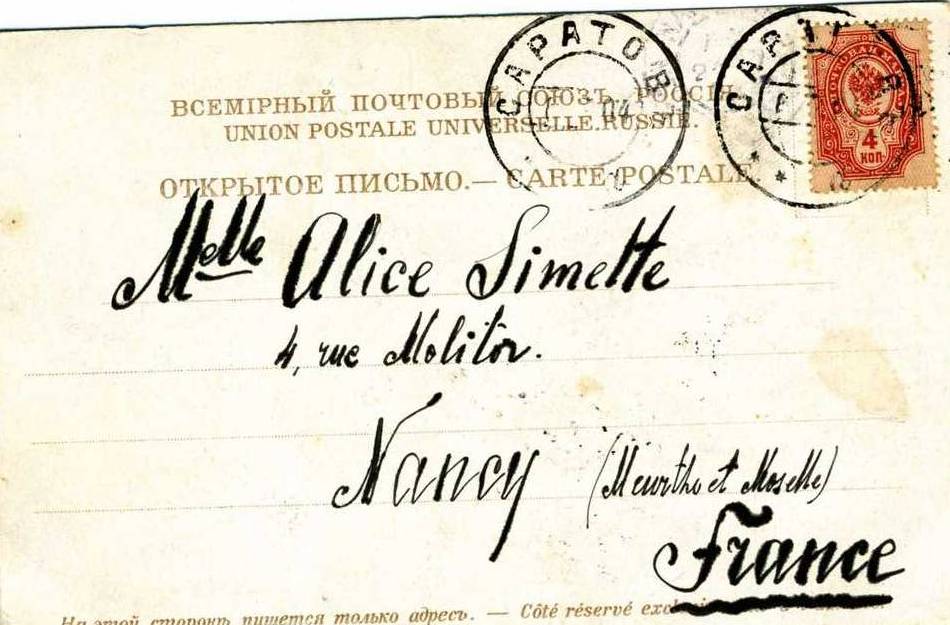 ВСЕМІРНЫЙ ПОЧТОВЫЙ СОЮЗЪ. РОССІЯ.
UNION POSTALE UNIVERSELLE.RUSSIE.
ОТКРЫТОЕ ПИСЬМО.— CARTE POSTALE.
САРАТОВ
04
САРАТ
ПОЧТОВАЯ МАРКА
4
КОП.
Melle Alice Simette
4, rue Molitor.
Nancy (Meurthe et Moselle)
France
На этой сторонѣ пишется только адресъ. — Côté réservé